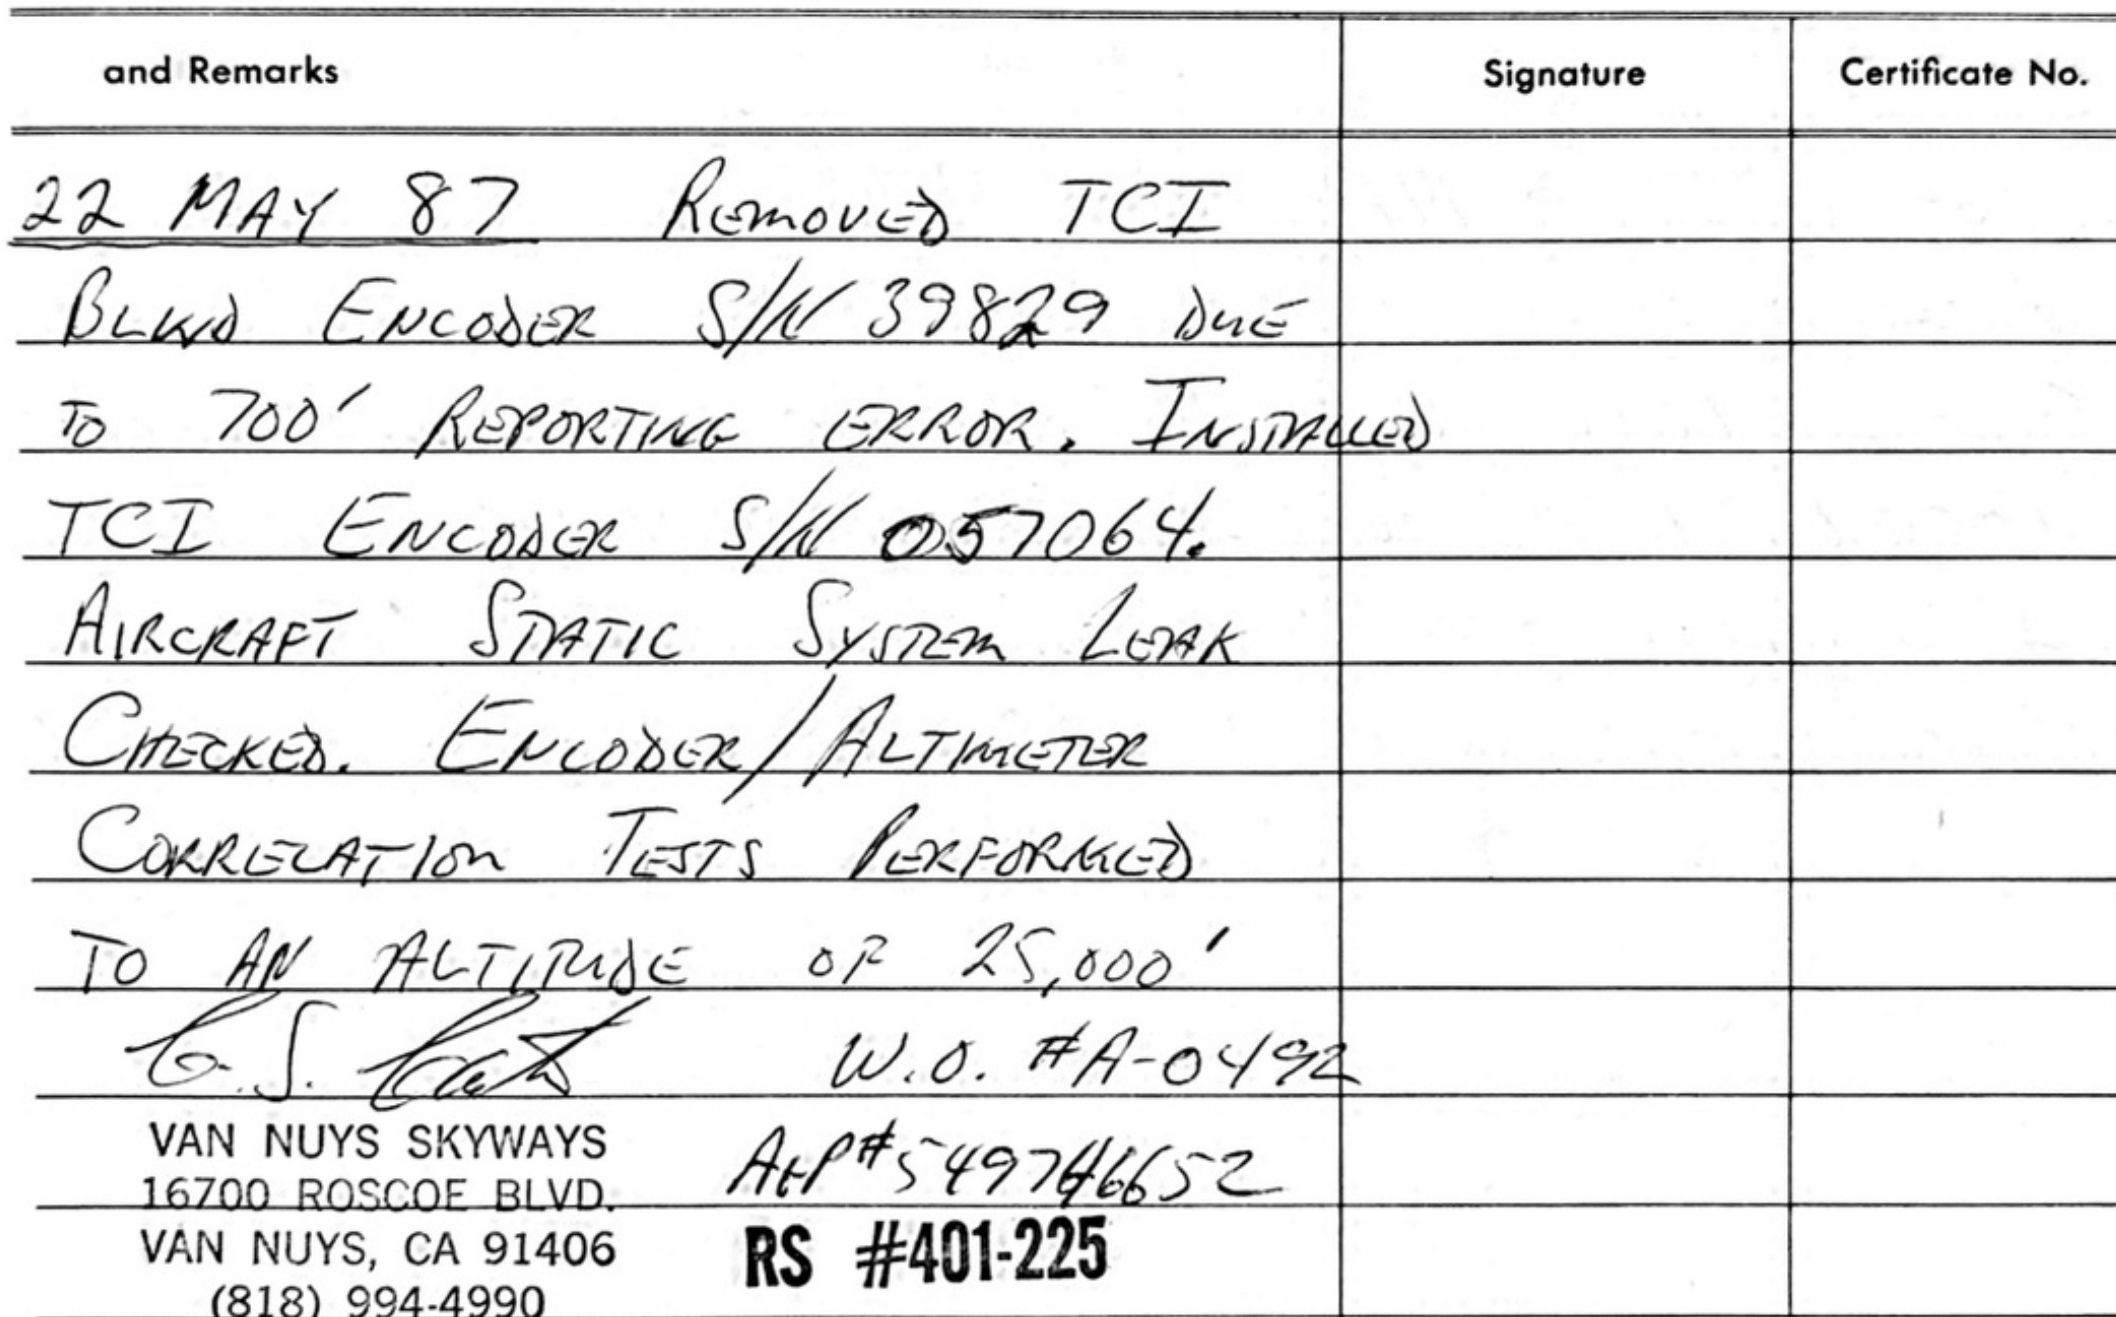 and Remarks Signature Certificate No.
22 MAY 87 REMOVED TCI
BLIND ENCODER S/N 39829 DUE
TO 700' REPORTING ERROR. INSTALLED
TCI ENCODER S/N 057064.
AIRCRAFT STATIC SYSTEM LEAK
CHECKED. ENCODER/ALTIMETER
CORRELATION TESTS PERFORMED
TO AN ALTITUDE OF 25,000'
W.O. #A-0492
VAN NUYS SKYWAYS
A&P#
16700 ROSCOE BLVD.
VAN NUYS, CA 91406 RS #401-225
(818) 994-4990